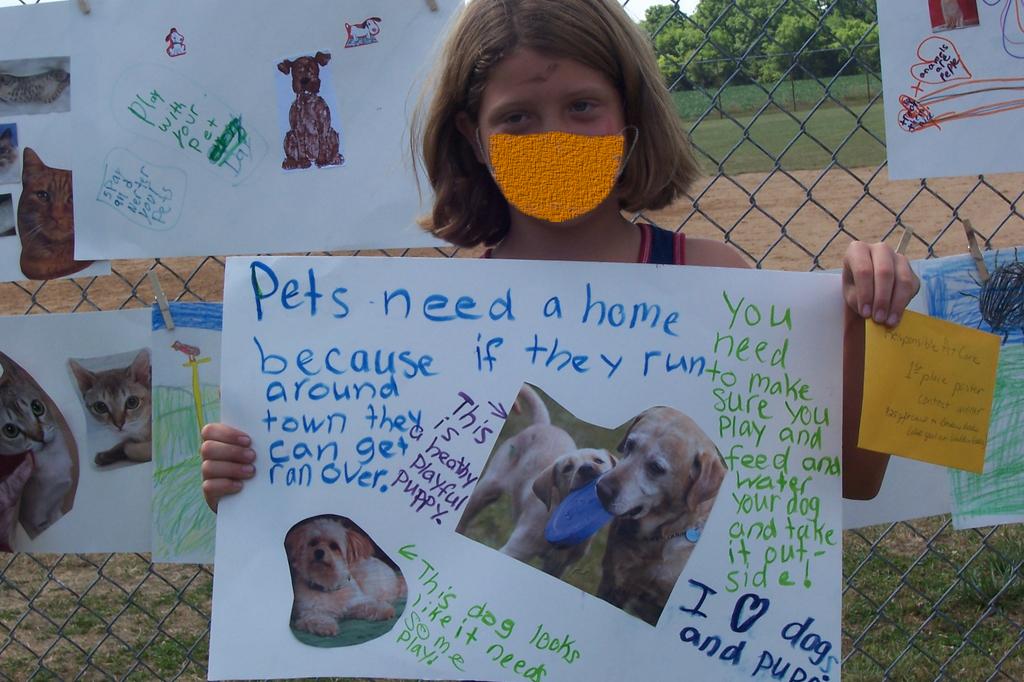 Play
with
your
pet
spay
and
nerter
your
Pets
animals
are
peple
Pets need a home
because if they run
around
town they
can get
ran over.
This
is
a healthy
playful
puppy.
You
need
to make
sure you
play and
feed and
water
your dog
and take
it out-
side!
This dog looks
like it needs
some
play!
I ♡ dogs
and pups
Responsible Pet Care
1st place poster
contest winner